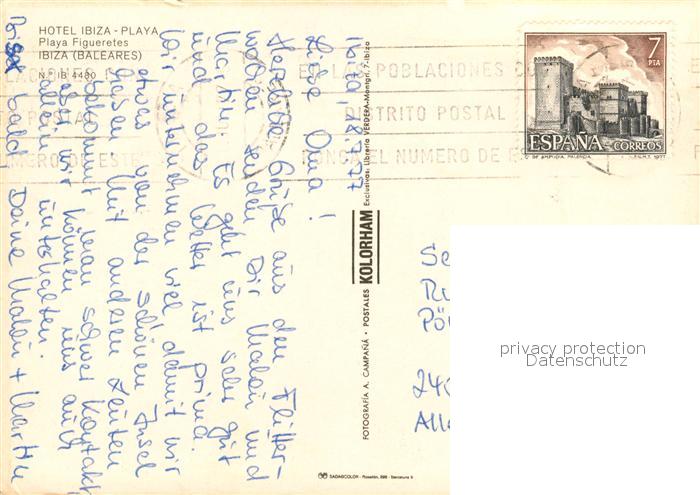 HOTEL IBIZA - PLAYA
Playa Figueretes
IBIZA (BALEARES)
N.º IB 4480
7
PTA
ESPAÑA
CORREOS
Cº DE AMPUDIA. PALENCIA.
F.N.M.T. 1977
EN LAS POBLACIONES CON
DISTRITO POSTAL
PONGA EL NUMERO DE ESTE
POSTAL
NUMERO DE ESTE
Ibiza, 18.7.77
Liebe Oma!
Herzliche Grüße aus den Flitter-
wochen senden Dir und
Martin. Es geht uns sehr gut
und das Wetter ist prima.
Wir unternehmen viel damit wir
etwas von der schönen Insel
Mit anderen Leuten
bekommt man schwer Kontakt,
aber wir können uns auch
allein unterhalten.
Bis bald Deine + Martin
FOTOGRAFIA A. CAMPAÑÁ · POSTALES KOLORHAM Exclusivas: Librería VERDERA-Montgrí, 7-Ibiza
SADAGCOLOR - Rosellón, 298 - Barcelona 9
privacy protection
Datenschutz